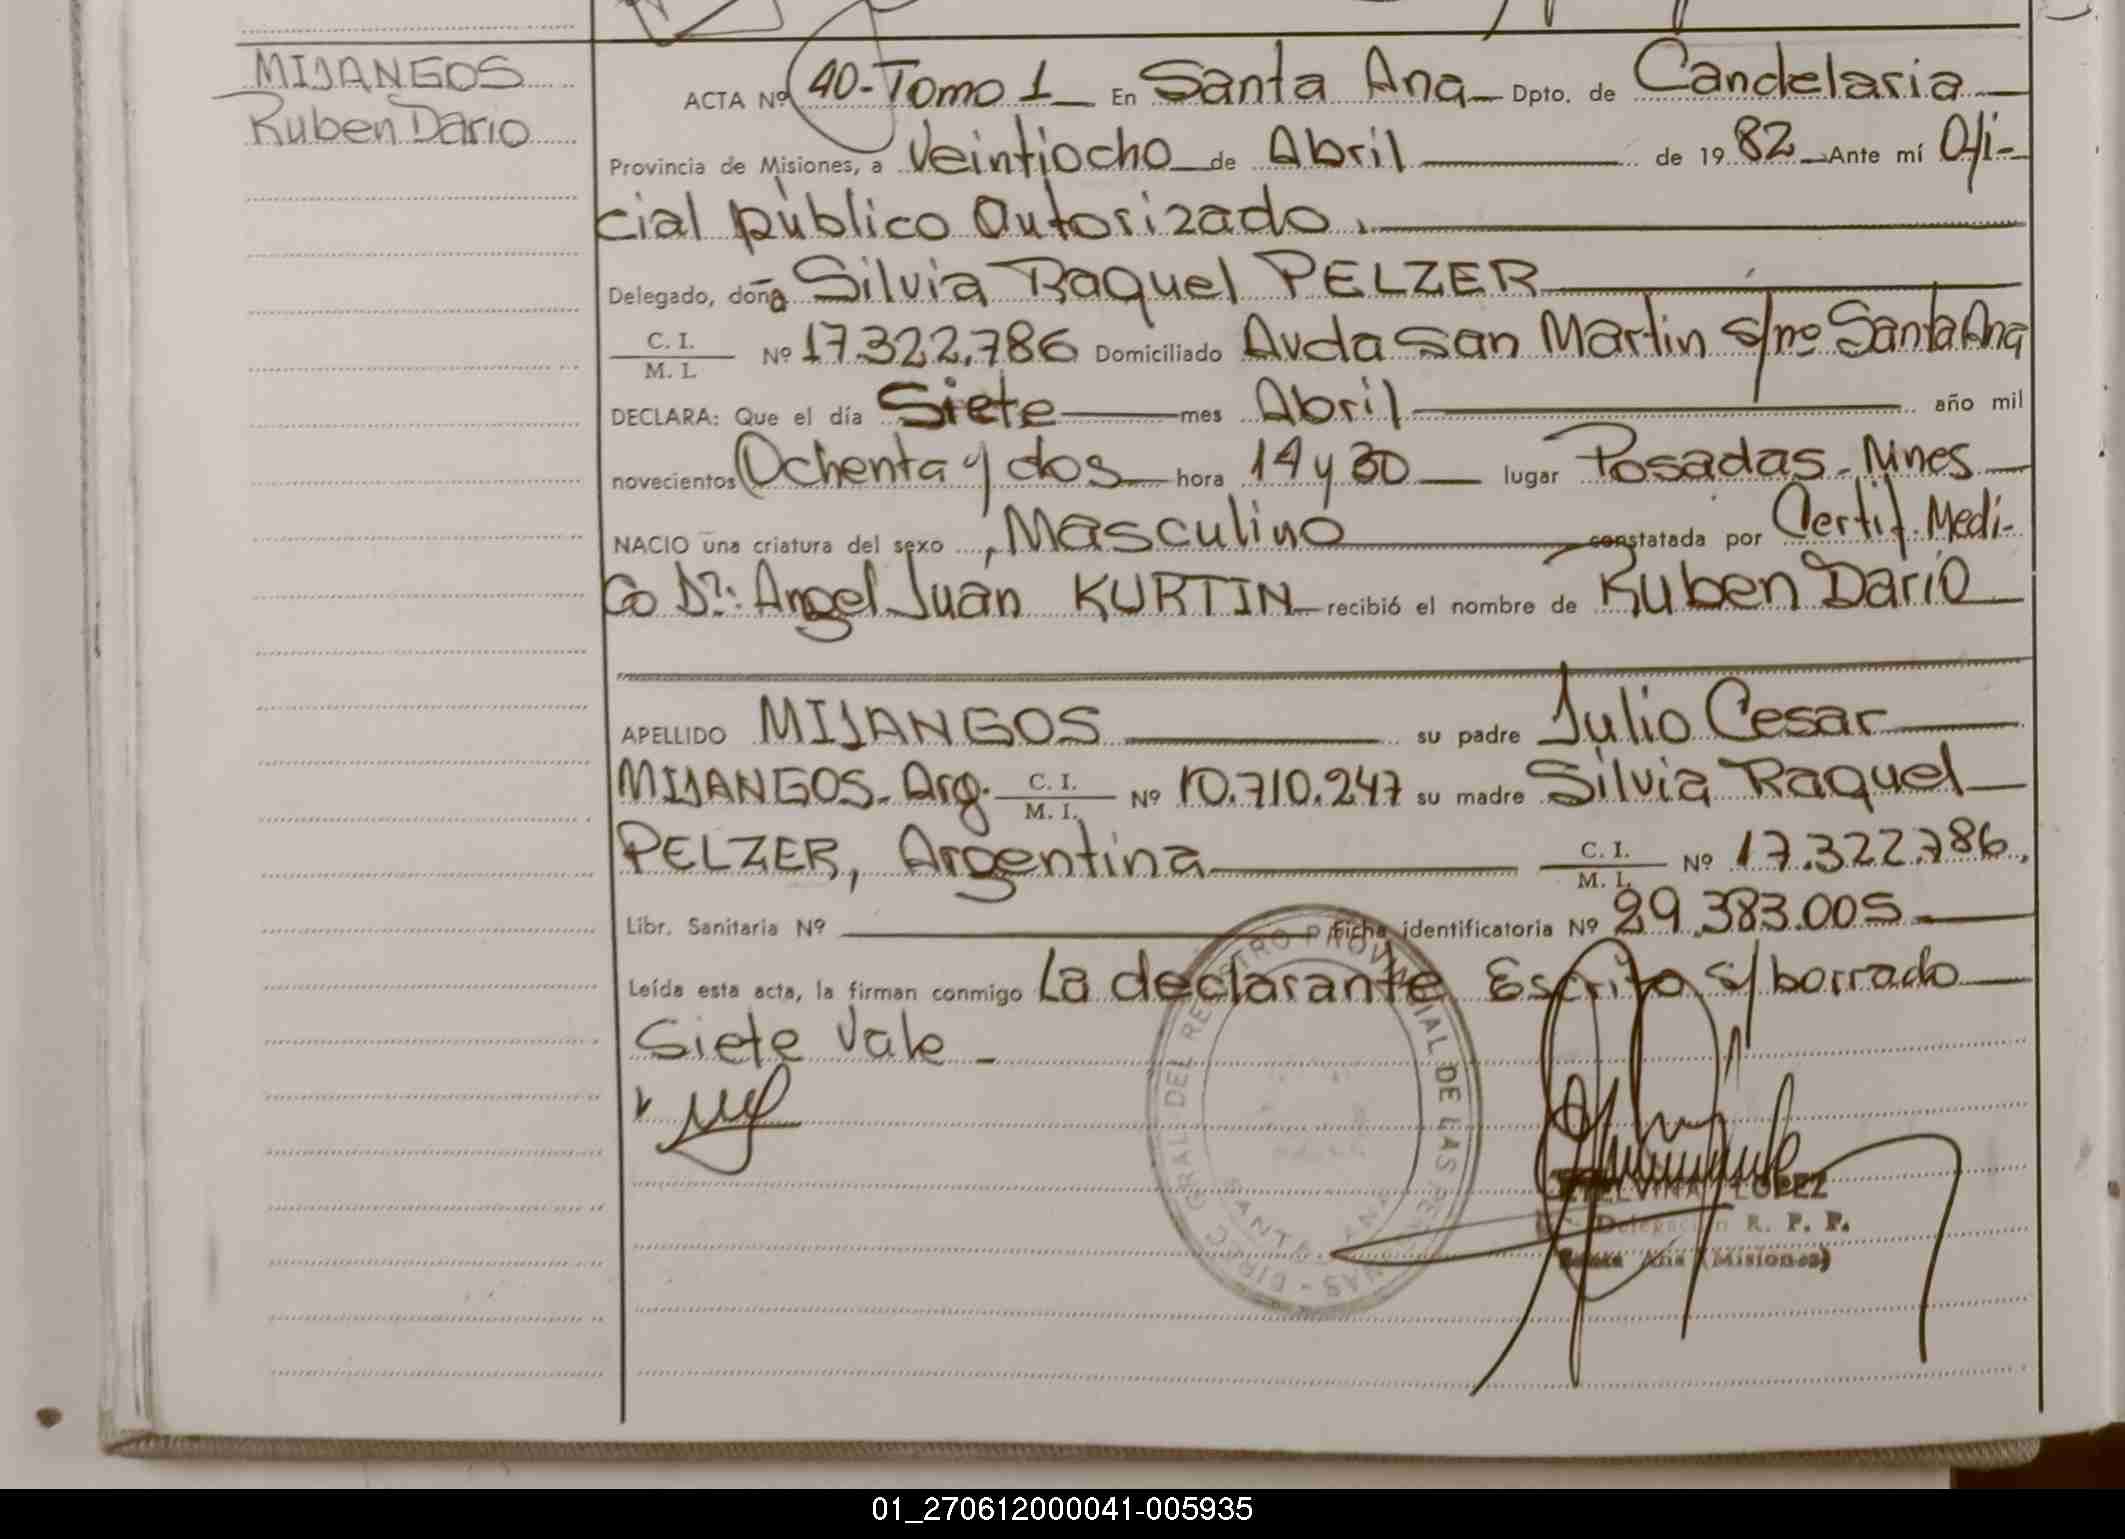 MIJANGOS
Ruben Dario
ACTA Nº 40-Tomo 1 En Santa Ana Dpto. de Candelaria
Provincia de Misiones, a Veintiocho de Abril de 19 82 Ante mí Ofi-
cial público Autorizado.
Delegado, doña Silvia Raquel PELZER
C. I. / M. I. Nº 17.322.786 Domiciliado Avda San Martin s/nº Santa Ana
DECLARA: Que el día Siete mes Abril año mil
novecientos Ochenta y dos hora 14 y 30 lugar Posadas - Mnes
NACIO una criatura del sexo Masculino constatada por Certif. Medi-
co Dr: Angel Juan KURTIN recibió el nombre de Ruben Dario
APELLIDO MIJANGOS su padre Julio Cesar
MIJANGOS - Arg. C. I. / M. I. Nº 10.710.247 su madre Silvia Raquel
PELZER, Argentina C. I. / M. I. Nº 17.322.786.
Libr. Sanitaria Nº Ficha identificatoria Nº 29.383.005
Leída esta acta, la firman conmigo La declarante Escrito s/ borrado
Siete Vale -
DIREC. GRAL. DEL REGISTRO PROVINCIAL DE LAS PERSONAS - SANTA ANA
LOPEZ
Delegación R. P. P.
Santa Ana (Misiones)
01_270612000041-005935